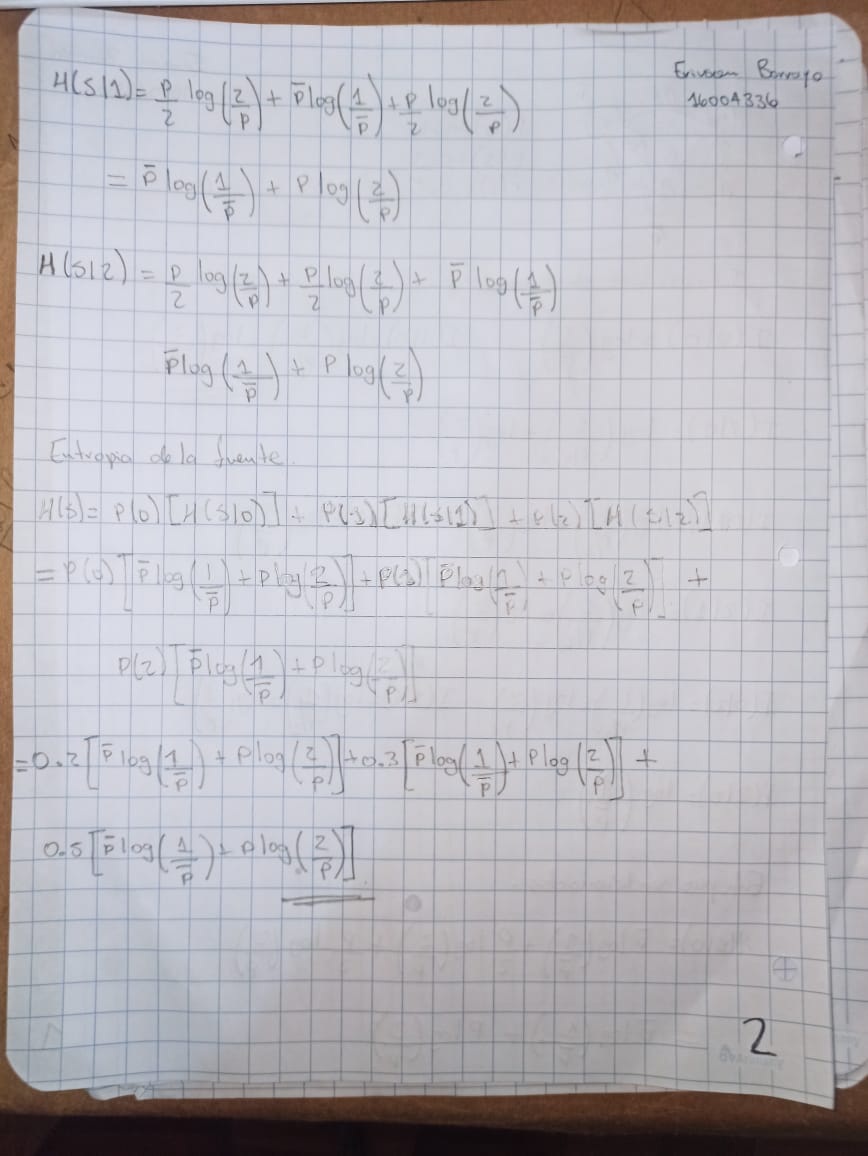 Barrayo
16004336
H(S|1) = p/2 log(2/p) + p̄ log(1/p̄) + p/2 log(2/p)
= p̄ log(1/p̄) + p log(2/p)
H(S|2) = p/2 log(2/p) + p/2 log(2/p) + p̄ log(1/p̄)
p̄ log(1/p̄) + p log(2/p)
Entropia de la fuente.
H(s) = P(0) [H(S|0)] + P(1) [H(S|1)] + P(2) [H(S|2)]
= P(0) [p̄ log(1/p̄) + p log(2/p)] + P(1) [p̄ log(1/p̄) + p log(2/p)] +
P(2) [p̄ log(1/p̄) + p log(2/p)]
= 0.2 [p̄ log(1/p̄) + p log(2/p)] + 0.3 [p̄ log(1/p̄) + p log(2/p)] +
0.5 [p̄ log(1/p̄) + p log(2/p)]
2